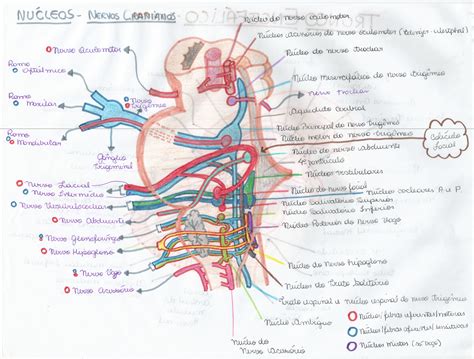 NÚCLEOS - NERVOS CRANIANOS
Núcleo do nervo oculomotor
Núcleo Acessório do nervo oculomotor (Edinger-Westphal)
Núcleo do nervo troclear
Nervo Oculomotor
Ramo
Oftálmico
Núcleo Mesencefálico do nervo trigêmio
Ramo
Maxilar
Nervo
Trigêmio
Nervo Troclear
Aqueduto Cerebral
Ramo
Mandibular
Núcleo Principal do nervo trigêmio
Núcleo motor do nervo trigêmio
Núcleo do nervo abducente
4º ventrículo
Colículo
facial
Gânglio
Trigeminal
Núcleos vestibulares
Nervo Facial
Núcleo do nervo facial
Núcleos cocleares A. e P.
Nervo Intermédio
Núcleo Salivatório Superior
Nervo Vestibulococlear
Núcleo Salivatório Inferior
Nervo Abducente
Núcleo Posterior do nervo Vago
Nervo Glossofaríngeo
Nervo Hipoglosso
Núcleo do nervo hipoglosso
Nervo Vago
Núcleo do Trato Solitário
Nervo Acessório
Trato espinal e núcleo espinal do nervo trigêmio
Núcleo Ambíguo
Núcleo do
Nervo Acessório
Núcleo/fibras eferentes/motoras
Núcleo/fibras aferentes/sensitivas
Núcleos Mistos